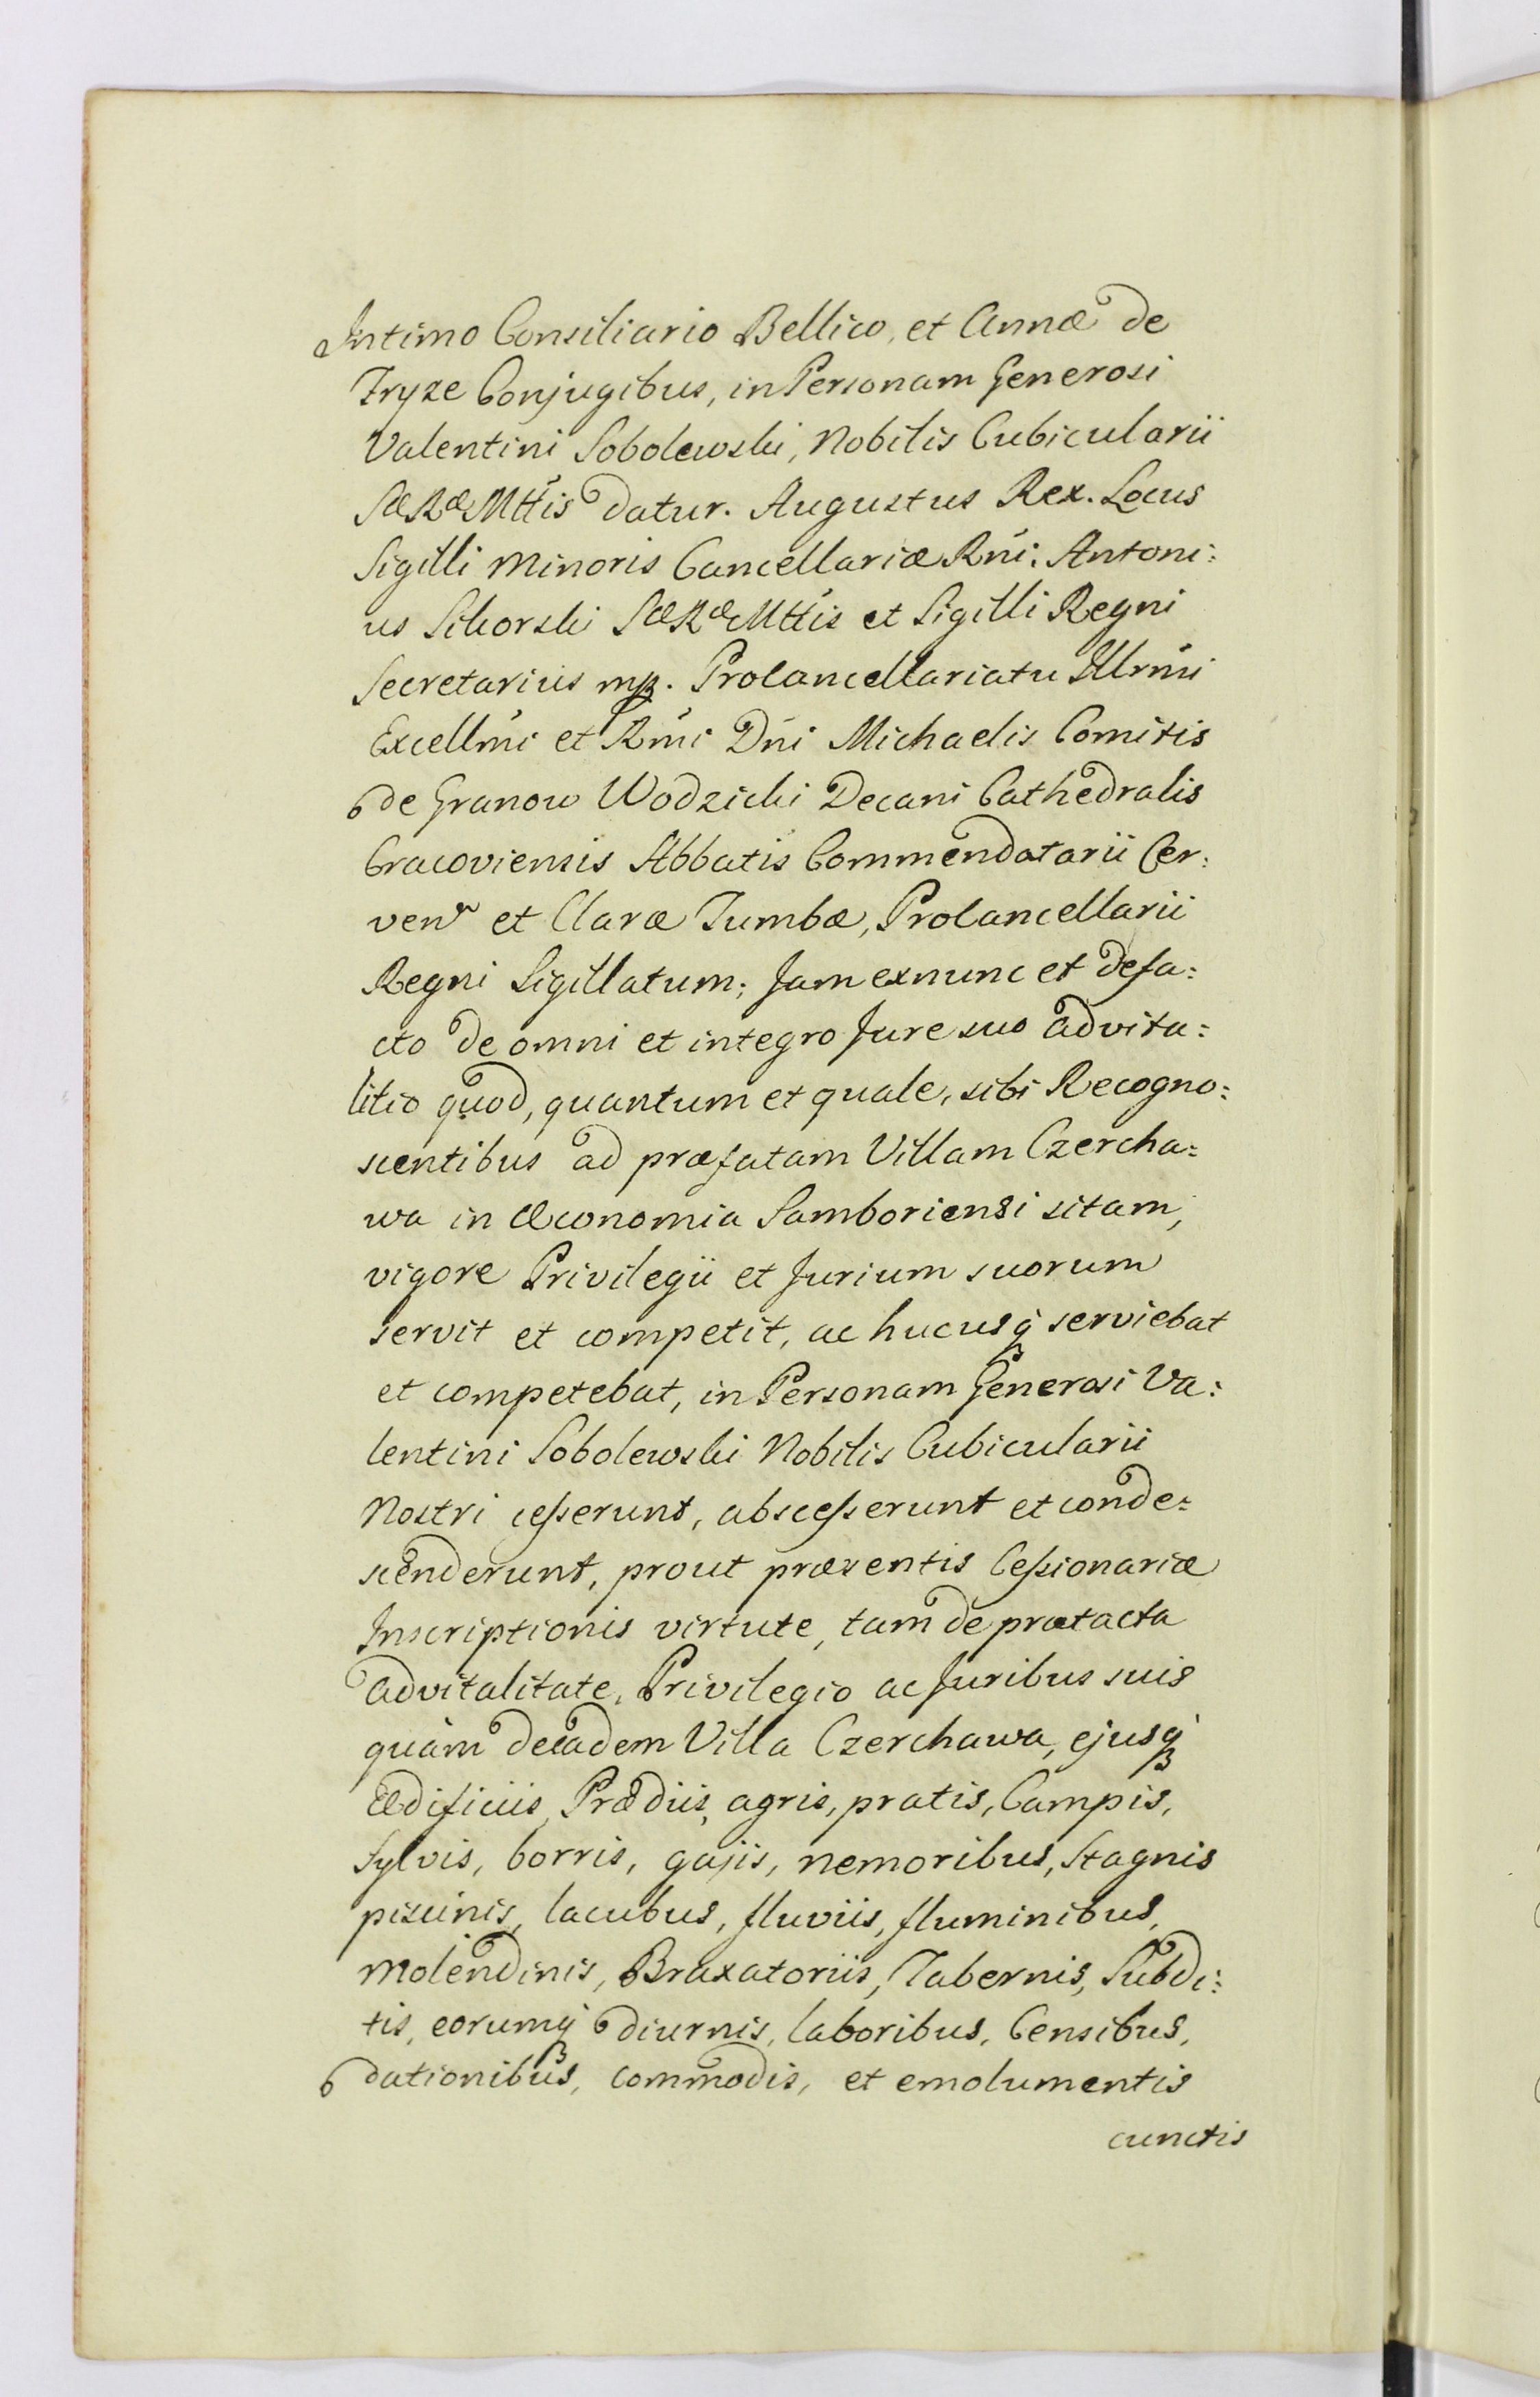 Intimo Consiliario Bellico, et Annæ de
Fryze Conjugibus, in Personam Generosi
Valentini Sobolewski, Nobilis Cubicularii
SæRæMttis datur. Augustus Rex. Locus
Sigilli Minoris Cancellariæ Rńi. Antoni:
us Sikorski SæRæMttis et Sigilli Regni
Secretarius mp. Procancellariatu Illrmi
Excellmi et Rmi Dńi Michaelis Comitis
de Granow Wodzicki Decani Cathedralis
Cracoviensis Abbatis Commendatarii Cer:
ven et Claræ Tumbæ, Procancellarii
Regni Sigillatum; Jam exnunc et defa:
cto de omni et integro Jure suo advita:
litio quod, quantum et quale, sibi Recogno:
scentibus ad præfatam Villam Czercha:
wa in Œconomia Samboriensi sitam,
vigore Privilegii et Jurium suorum
servit et competit, ac hucusq serviebat
et competebat, in Personam Generosi Va:
lentini Sobolewski Nobilis Cubicularii
Nostri ceſserunt, absceſserunt et conde:
scenderunt, prout præsentis Ceſsionariæ
Inscriptionis virtute, tam de prætacta
advitalitate, Privilegio ac Juribus suis
quàm deeadem Villa Czerchawa, ejusq
ædificiis, Prædiis, agris, pratis, Campis,
Sylvis, borris, gajis, nemoribus, Stagnis
piscinis, lacubus, fluviis, fluminibus,
Molendinis, Braxatoriis, Tabernis, Subdi:
tis, eorumq diurnis, laboribus, Censibus,
dationibus, commodis, et emolumentis
cunctis